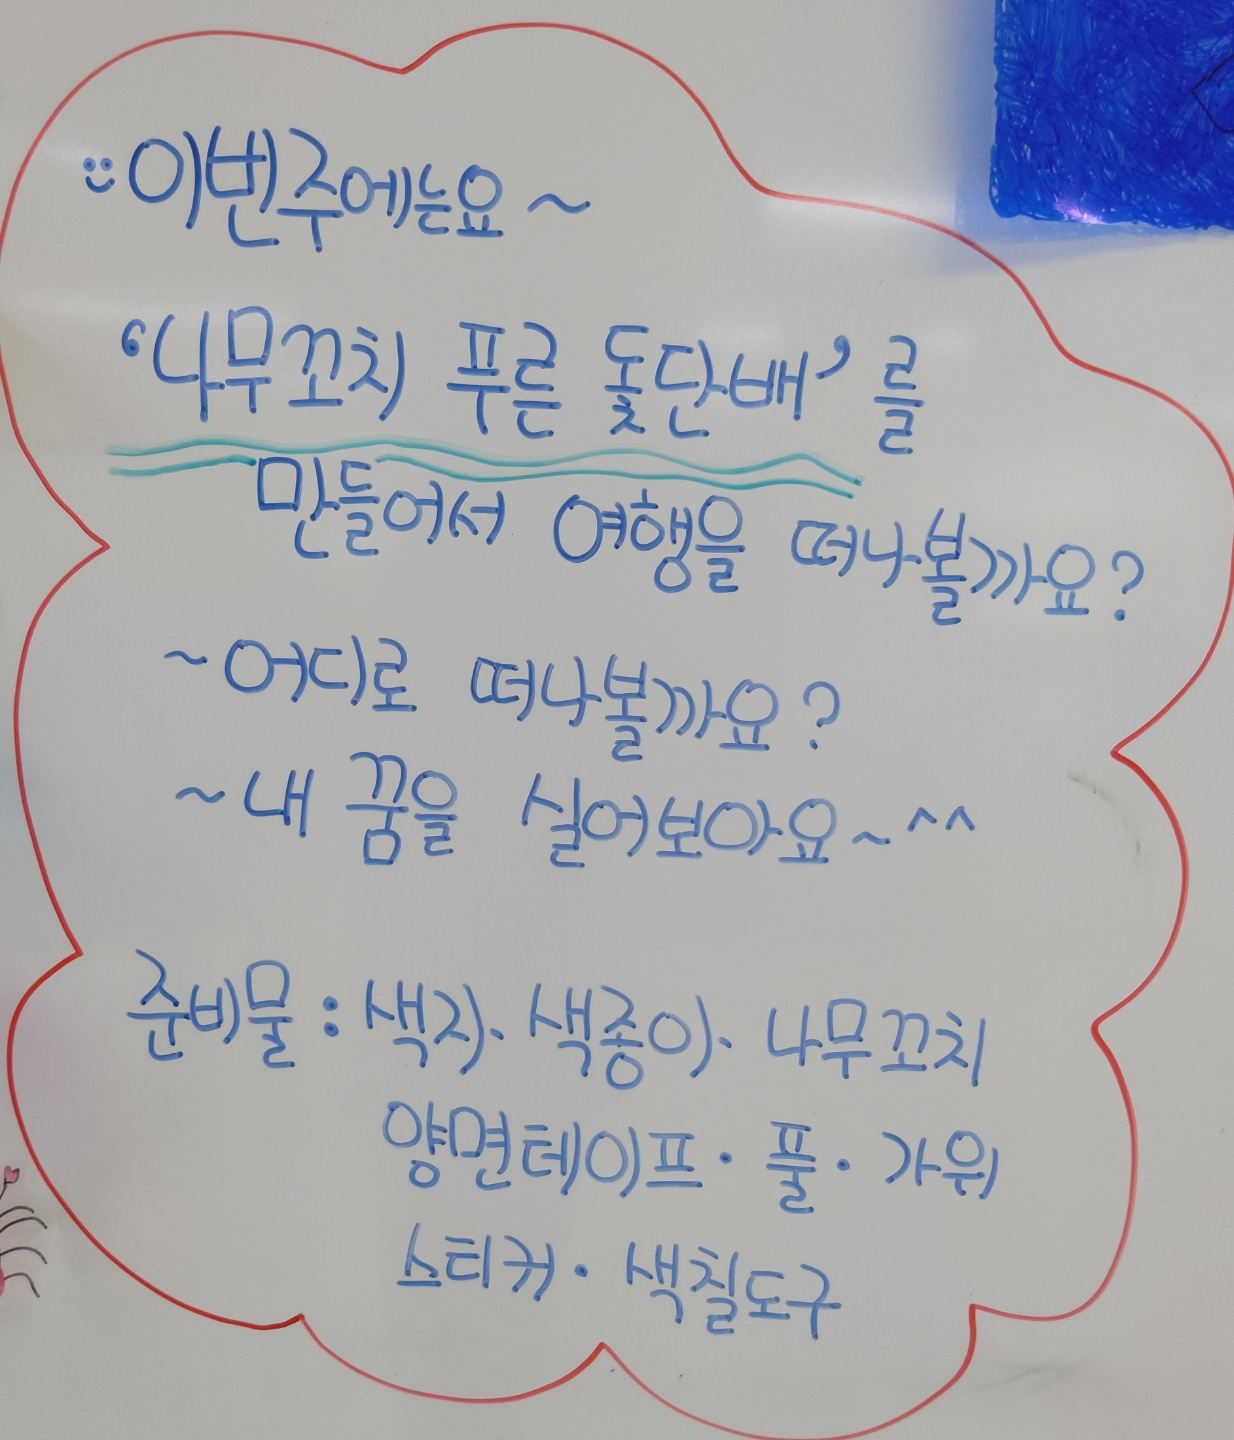 이번주에는요~
'나무꼬치 푸른 돛단배'를
만들어서 여행을 떠나볼까요?
~어디로 떠나볼까요?
~내 꿈을 실어보아요~^^
준비물 : 색지· 색종이· 나무꼬치
양면테이프 · 풀 · 가위
스티커 · 색칠도구